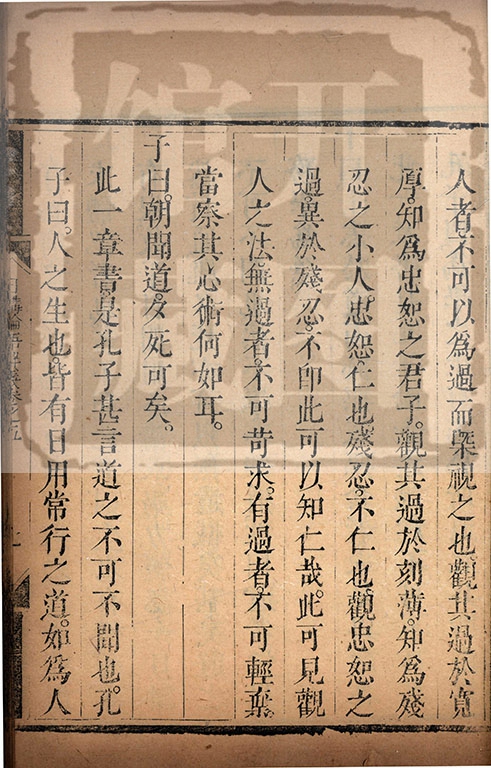 人者不可以爲過而槩視之也觀其過於寛
厚知爲忠恕之君子觀其過於刻薄知爲殘
忍之小人忠恕仁也殘忍不仁也觀忠恕之
過異於殘忍不卽此可以知仁哉此可見觀
人之法無過者不可苛求有過者不可輕棄
當察其心術何如耳
子曰朝聞道夕死可矣
此一章書是孔子甚言道之不可不聞也孔
子曰人之生也皆有日用常行之道如爲人